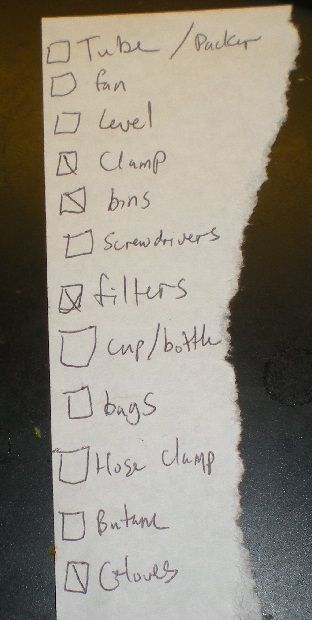 Tube / Packer
fan
Level
Clamp
bins
Screwdrivers
filters
cup/bottle
bags
Hose Clamp
Butane
Gloves